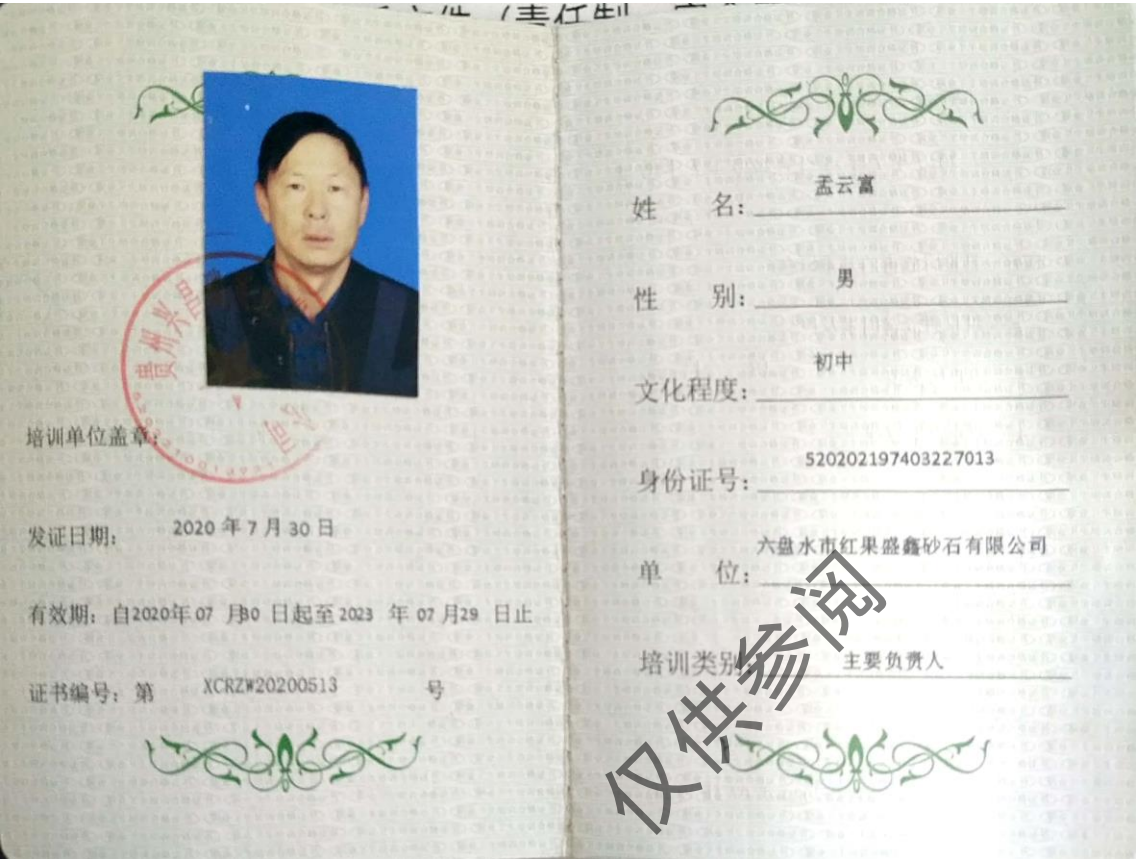 贵州兴
培训单位盖章:
发证日期: 2020 年 7 月 30 日
有效期: 自2020年 07 月30 日起至 2023 年 07 月29 日止
证书编号: 第 XCRZW20200513 号
姓 名: 孟云富
性 别: 男
文化程度: 初中
身份证号: 520202197403227013
单 位: 六盘水市红果盛鑫砂石有限公司
培训类别: 主要负责人
仅供参阅